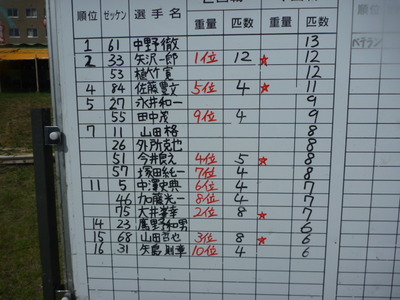 順位 ゼッケン 選手名 重量 匹数
1 61 中野徹 13
2 33 矢沢一郎 1位 12 ★ 12
53 植竹寛 12
4 84 佐藤豊文 5位 4 ★ 11
5 27 永井和一 9
55 田中茂 9位 4 9
7 11 山田格 8
26 外所克也 8
51 今井良え 4位 5 ★ 8
57 塚田純一 7位 4 8
11 5 中澤史典 6位 4 7
46 加藤光一 8位 4 7
75 大井峯幸 2位 8 ★ 7
14 23 鷹野和男 6
15 68 山田哲也 3位 8 ★ 6
16 31 矢島則章 10位 4 6
ベテラン